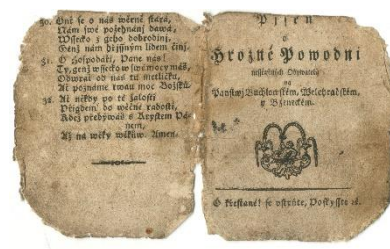 30. Onť se o nás wěrně stará,
Nám swé požehnánj dáwá,
Wssecko z geho dobrodinj,
Genž nám hřjssným lidem činj.
31. O Hospodáři, Pane náš!
Ty, genž wssecko w swé mocy máš,
Odwrať od nás tu metličku,
Ať poznáme twau moc Božskau.
32. Ať někdy po té žalosti
Přigdem' do wěčné radosti,
Kdež přebýwáš s Krystem Pá-
nem,
Až na wěky wěkůw. Amen.
Pjseň
o
Hrozné Powodni
Obywatelů
na
Panstwj Buchlowském, Welehradském,
a Bženeckém.
O křesťané! se ustrňte, Poskysste ic.